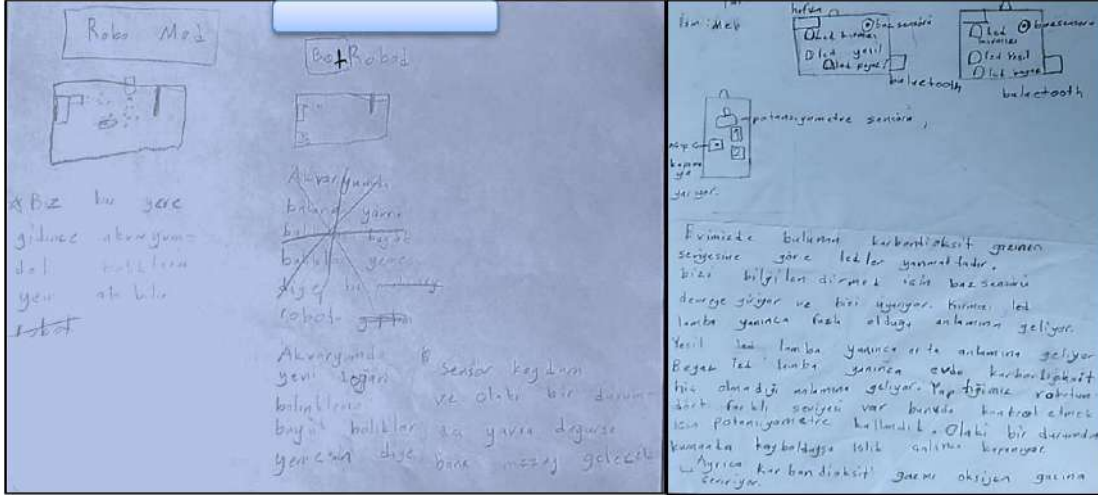 Robo Med
* Biz bu yere
gidince akvaryum-
daki balıklara
yem ata bilir
robot
Bot Robod
Akvaryumda
bulunan yavru
balıkları büyük
balıklar yemesin
diye bu
robotu
Akvaryumda
yeni doğan
balıkları
büyük balıklar
yemesin diye
Sensör koydum
ve olaki bir durum-
da yavru doğursa
bana mesaj gelecek
İsim: Meb
hafıza
baz sensörü
led kırmızı
led yeşil
led beyaz
buluetooth
led kırmızı
led yeşil
led beyaz
buluetooth
potansiyometre sensörü,
1
2
açıp
kapama
ya
yarıyor.
Evimizde bulunan karbondioksit gazının
seviyesine göre ledler yanmaktadır.
bizi bilgilendirmek için baz sensörü
devreye giriyor ve bizi uyarıyor. Kırmızı led
lamba yanınca fazla olduğu anlamına geliyor.
Yeşil led lamba yanınca orta anlamına geliyor
Beyaz led lamba yanınca evde karbondioksit
hiç olmadığı anlamına geliyor. Yaptığımız robotun
dört farklı seviyesi var bunuda kontrol etmek
için potansiyometre kullandık. Olaki bir durumda
kumanda kaybolduysa
Ayrıca karbandioksit gazını oksijen gazına
çeviriyor.